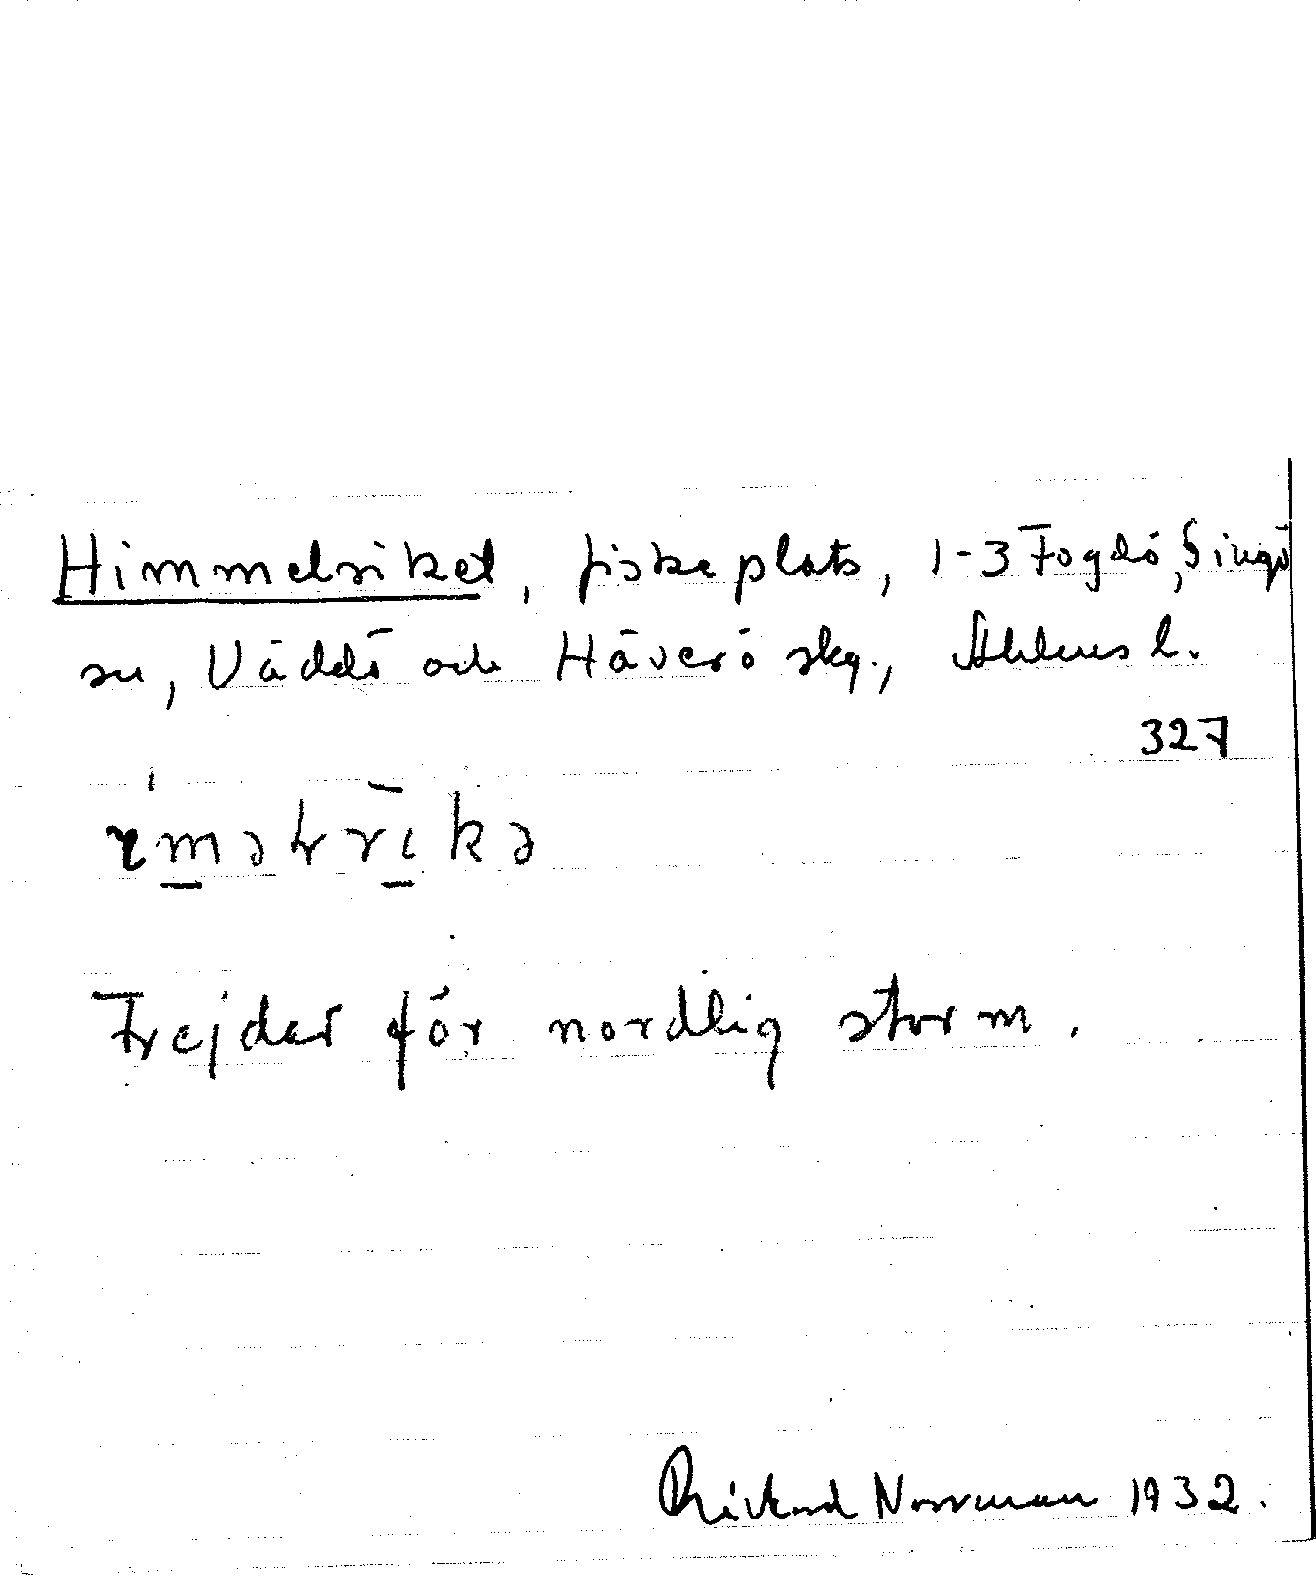 Himmelriket, fiskeplats, 1-3 Fogdö, Singö
sn, Väddö och Häverö skg., Sthlms l.
327
Frejdar för nordlig storm.
Rickard Norrman 1932.